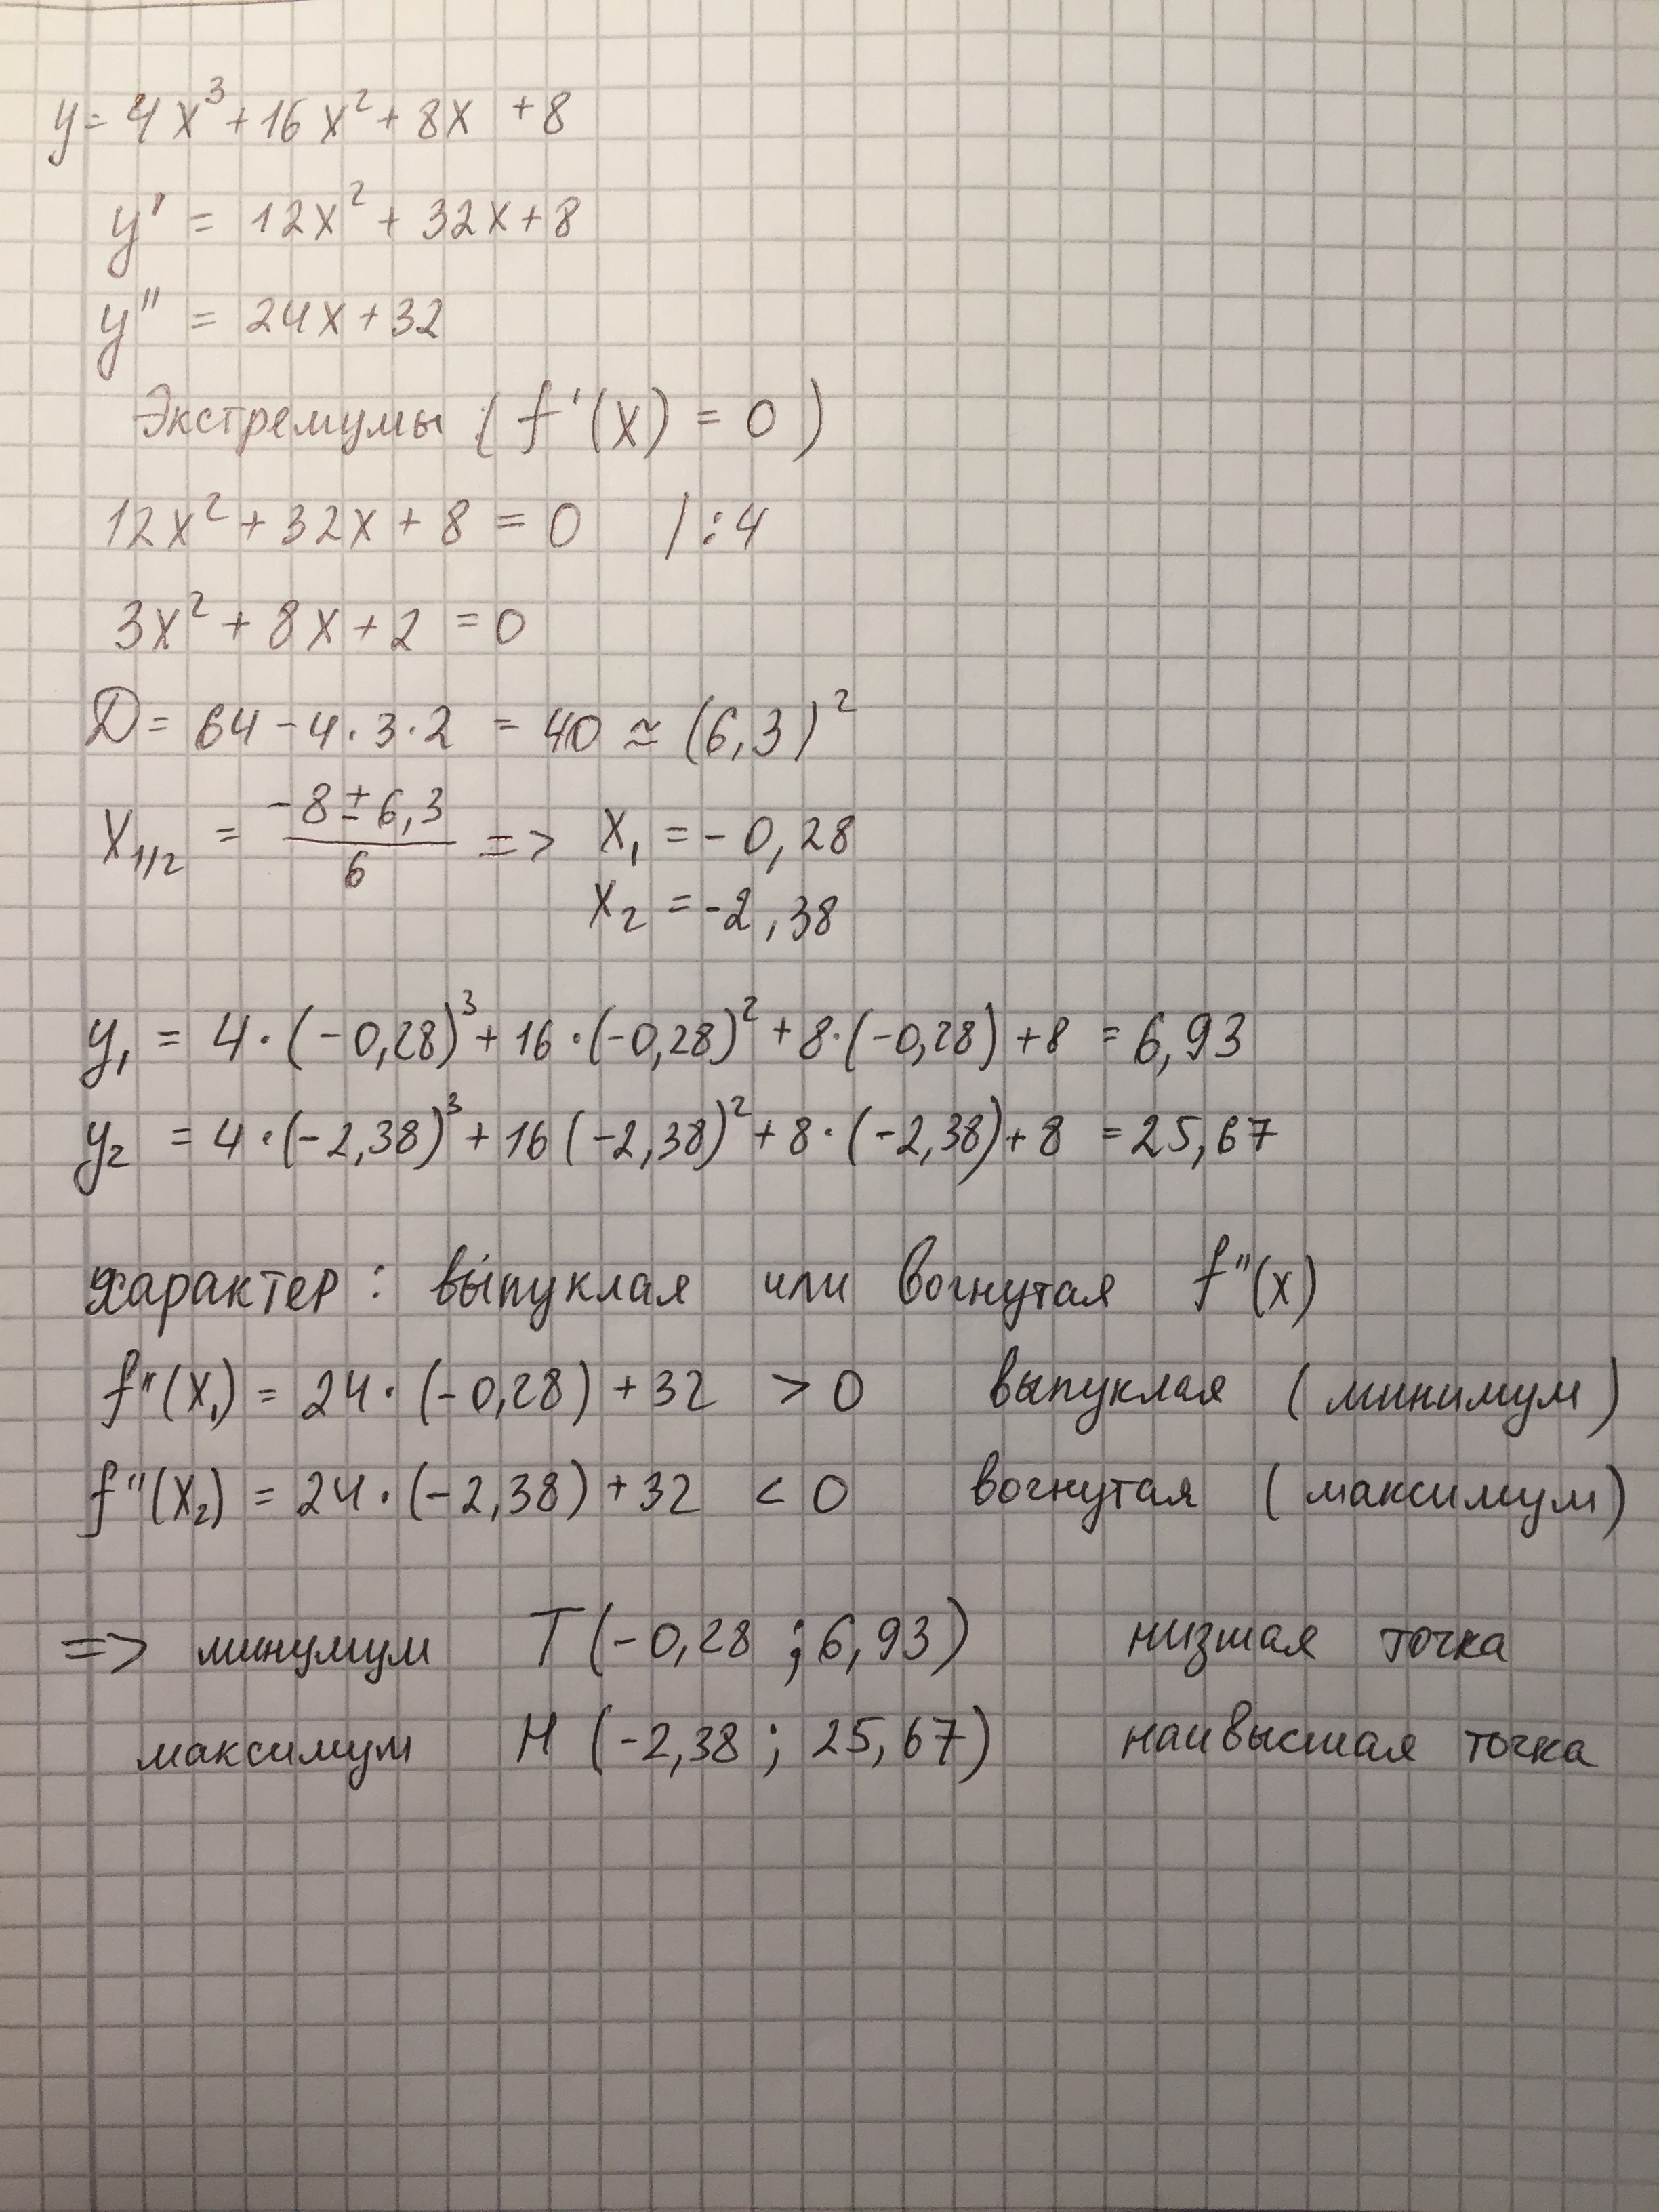 y = 4x³ + 16x² + 8x + 8
y' = 12x² + 32x + 8
y'' = 24x + 32
Экстремумы (f'(x) = 0)
12x² + 32x + 8 = 0 /:4
3x² + 8x + 2 = 0
D = 64 - 4·3·2 = 40 ≈ (6,3)²
x₁/₂ = (-8 ± 6,3)/6 => x₁ = -0,28
x₂ = -2,38
y₁ = 4·(-0,28)³ + 16·(-0,28)² + 8·(-0,28) + 8 = 6,93
y₂ = 4·(-2,38)³ + 16(-2,38)² + 8·(-2,38) + 8 = 25,67
характер: выпуклая или вогнутая f''(x)
f''(x₁) = 24·(-0,28) + 32 > 0 выпуклая (минимум)
f''(x₂) = 24·(-2,38) + 32 < 0 вогнутая (максимум)
=> минумум T(-0,28 ; 6,93) низшая точка
максимум H (-2,38 ; 25,67) наивысшая точка